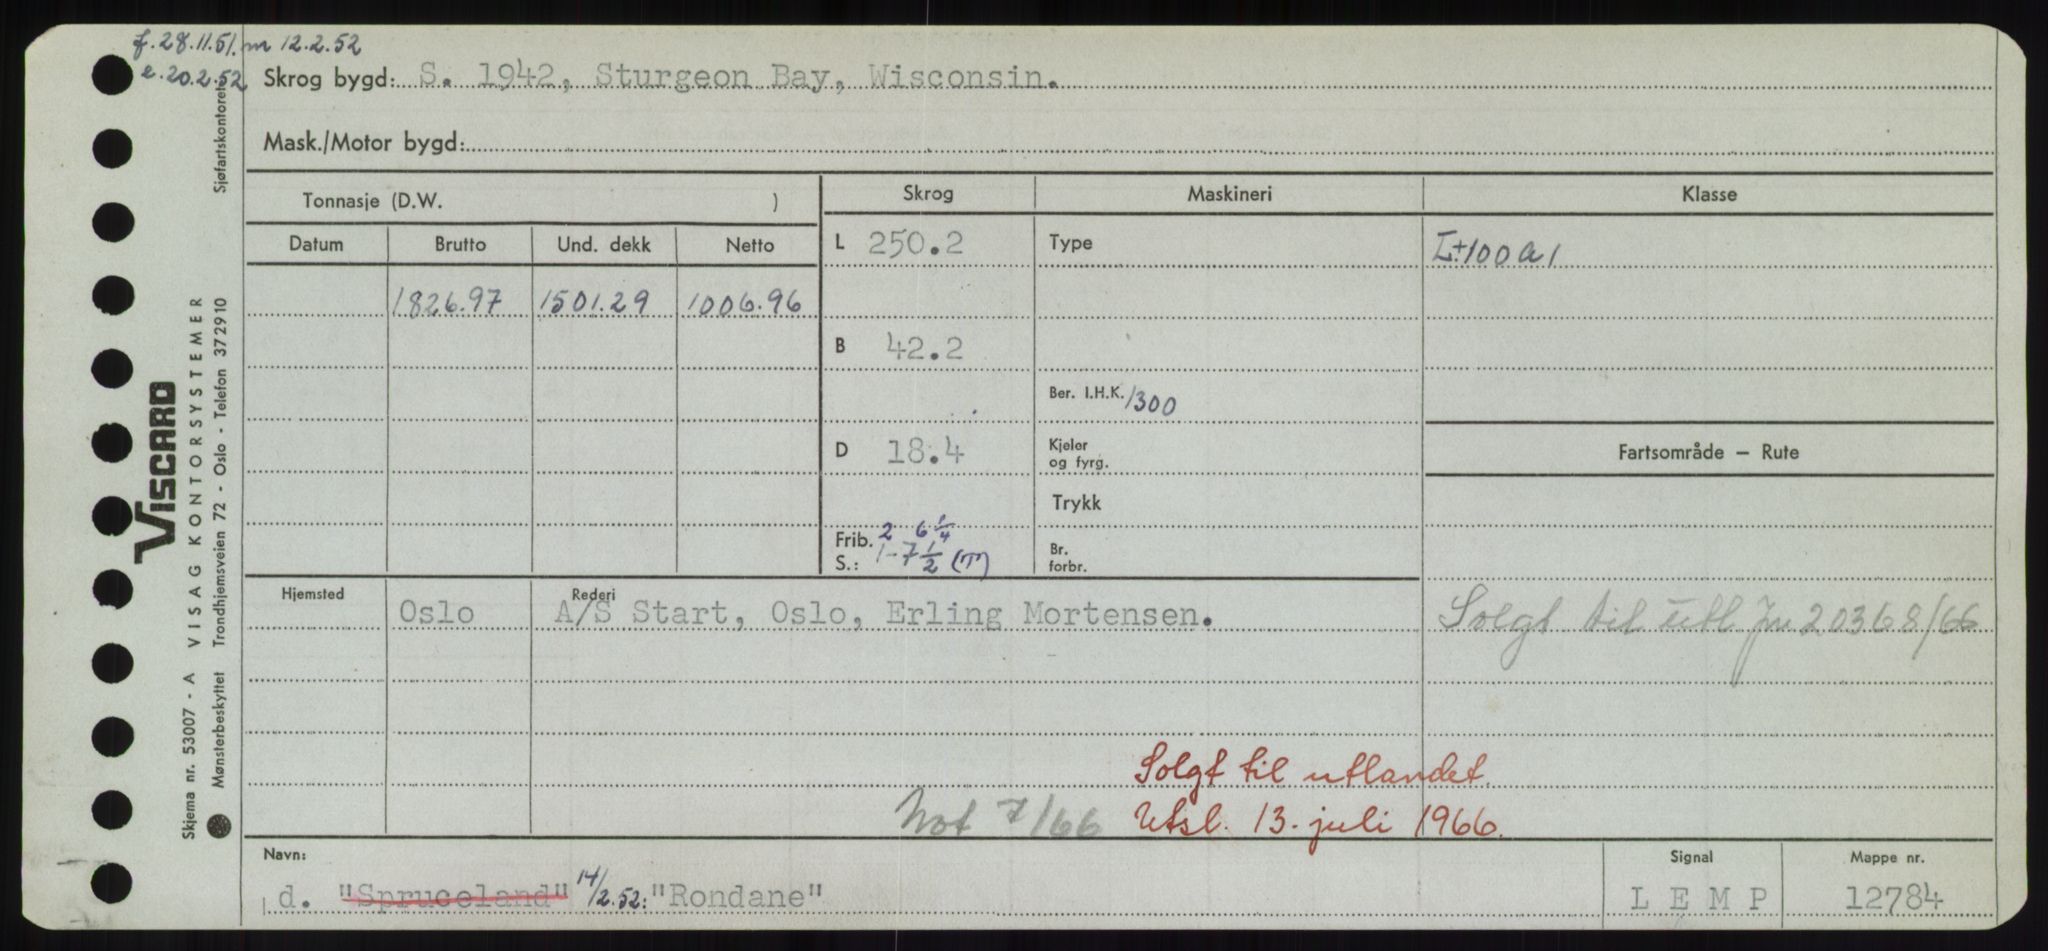 f. 28.11.51. m 12.2.52
e. 20.2.52
Skrog bygd: S. 1942, Sturgeon Bay, Wisconsin.
Mask./Motor bygd:
Tonnasje (D.W. )
Skrog
Maskineri
Klasse
Datum
Brutto
Und. dekk
Netto
L 250.2
Type
1826.97
1501.29
1006.96
B 42.2
Ber. I.H.K. 1300
D 18.4
Kjeler
og fyrg.
Fartsområde – Rute
Trykk
Frib. 2 6 1/4
S.: 1-7 1/2 (T)
Br.
forbr.
Hjemsted
Oslo
Rederi
A/S Start, Oslo, Erling Mortensen.
Solgt til utl Jn 20368/66
Solgt til utlandet.
Not 7/66
Utsl. 13. juli 1966.
Navn:
d. "Spruceland" 14/2.52: "Rondane"
Signal
L E M P
Mappe nr.
12784
VISCARD
Skjema nr. 53007 - A VISAG KONTORSYSTEMER
Mønsterbeskyttet Trondhjemsveien 72 - Oslo - Telefon 372910
Sjøfartskontoret